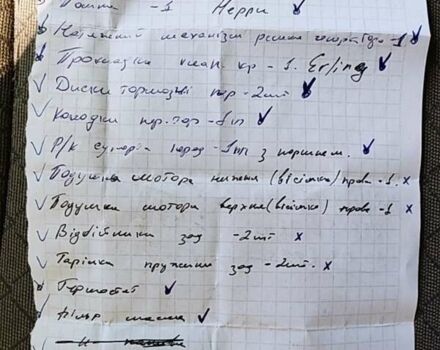 Помпа - 1 Hepu
Натяжний механізм ременя генератора - 1
Прокладки клап. кр - 1. Erling
Диски тормозні пер - 2шт
Колодки пр. тор - 1п
Р/к супорта перед - 1шт з поршнем.
Подушка мотора нижня (вісімка) права - 1 x
Подушка мотора верхня (вісімка) права - 1 x
Відбійники зад - 2шт x
Тарілка пружини зад - 2шт. x
Термостат
Фільтр масла